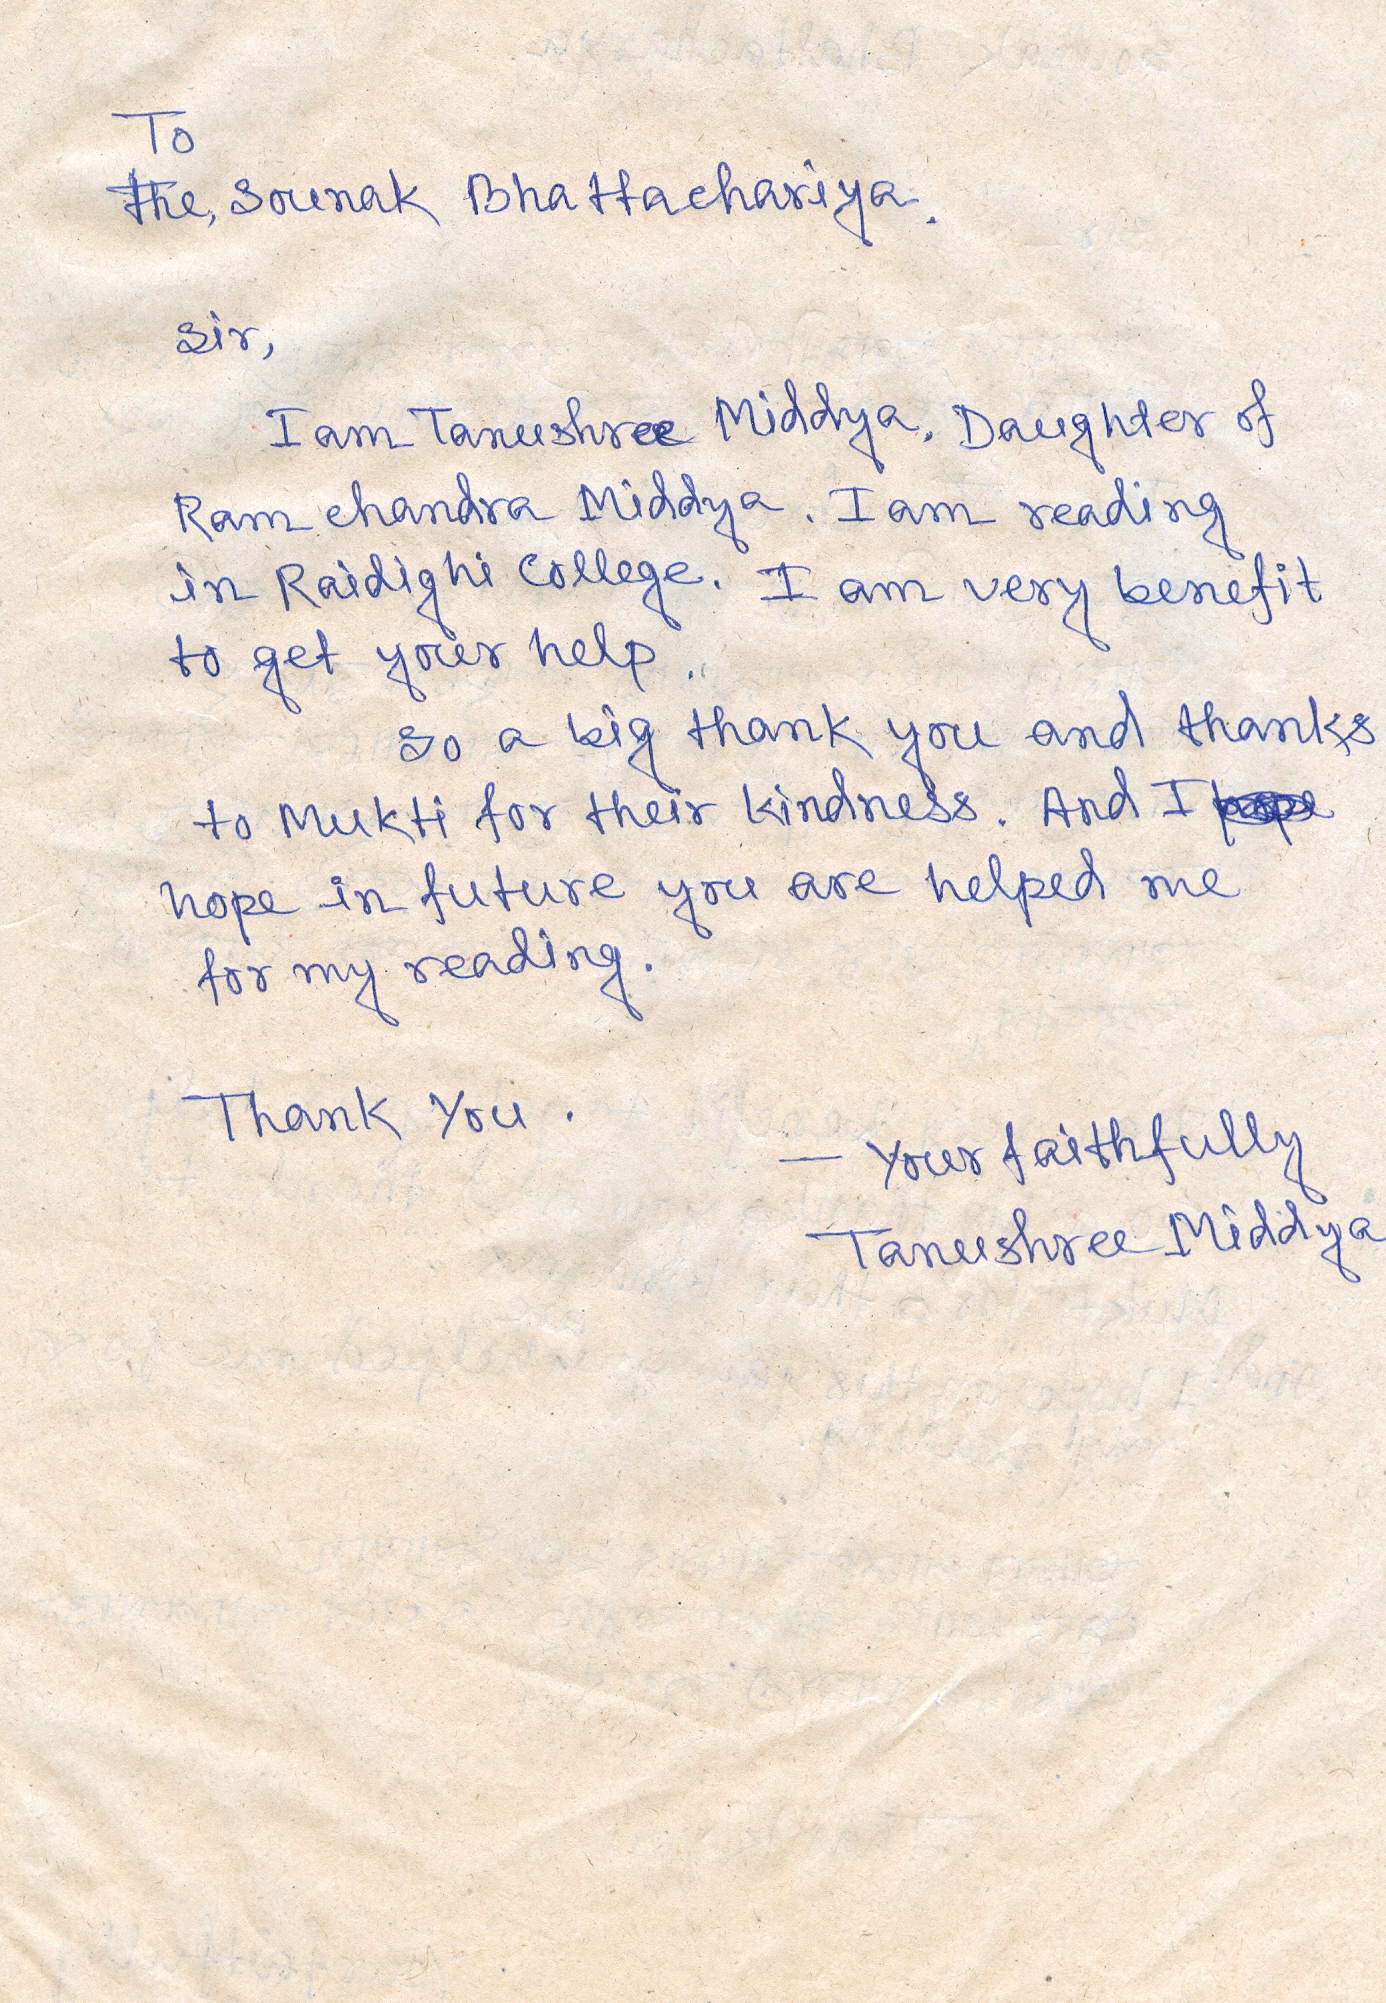 To
The, Sounak Bhattachariya.
Sir,
I am Tanushree Middya, Daughter of
Ram chandra Middya. I am reading
in Raidighi College. I am very benefit
to get your help.
So a big thank you and thanks
to Mukti for their kindness. And I
hope in future you are helped me
for my reading.
Thank You.
— Your faithfully
Tanushree Middya